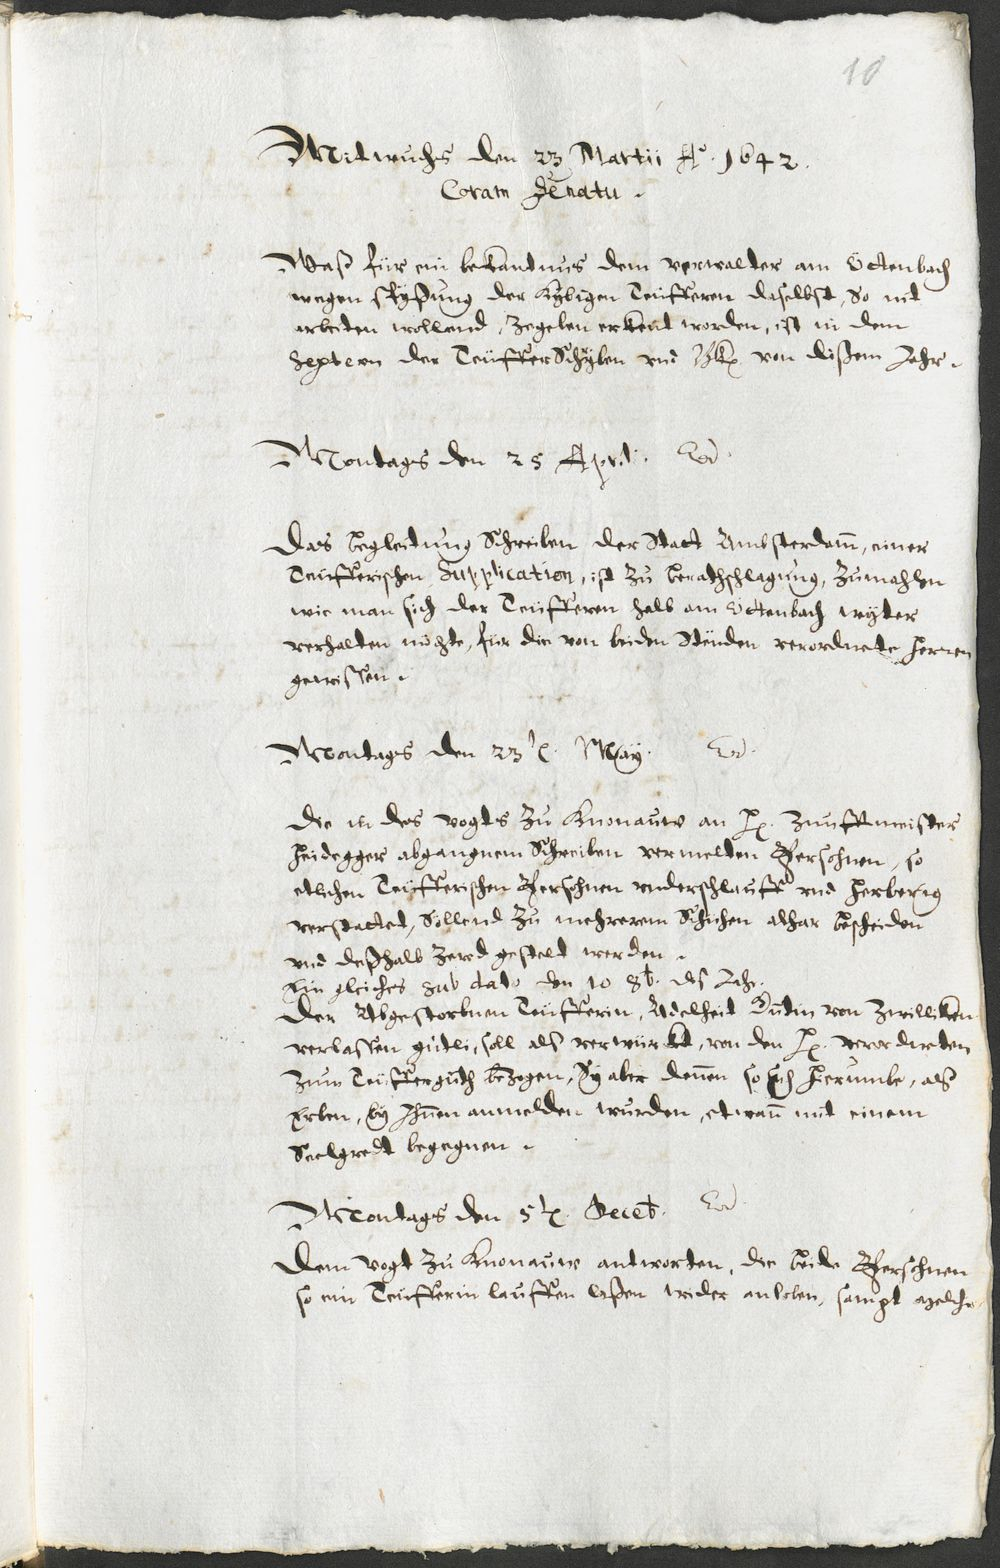 10
Mitwuchs den 23 Martii Aº. 1642.
Coram Senatu.
Waß für ein bekandtnus dem verwalter am Ötenbach
wegen spyßung der kybigen Teüfferen daselbst, So nit
arbeiten wollend, zegeben erkent worden, ist in dem
der Teüffer Schyben und von dißem Jahr.
Montags den 25 April.
Das begleitung Schreiben der Statt Ambsterdam, einer
Teüfferischen Supplication, ist zu berathschlagung, zumahlen
wie man sich der Teüfferen halb am Ötenbach wyter
verhalten möchte, für die von beiden Stenden verordnete Herren
gewissen.
Montags den 23 May.
Die in des vogts zu Knonauw an H. Zunfftmeister
Heidegger abgangnem Schreiben vermelten Persohnen, so
etlichen Teüfferischen Persohnen underschlauff und herberig
verstattet, Sollend zu mehrerem Schühen alhar bescheiden
und deßhalb zered gestelt werden.
Ein gleiches sub dato den 10 8b. diß Jahr.
Der Abgestorbnen Teüfferin, Adelheit von Zwilliken
verlassen gütli, soll als verwürkt, von den H. verordneten
zum Teüffergutt bezogen, Sy aber denen so sich hierumbe, als
Erben, by Ihnen anmelden wurden, etwan mit einem
Seelgredt begegnen.
Montags den 5 Decet.
Dem vogt zu Knonauw antworten, die beide Persohnen
so ein Teüfferin lauffen laßen wider anloben, sampt